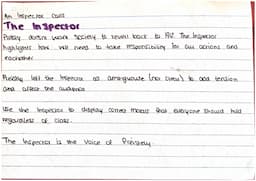 An Inspector Calls
The Inspector
Priestly doesn't want society to revert back to 1912. The Inspector
highlights how we need to take responsibility for our actions and
eachother
Priestley left the Inspector as ambiguous (no bio) to add tension
and affect the audience
Use the Inspector to display correct morals that everyone should hold
regardless of class.
The Inspector is the Voice of Priestley.